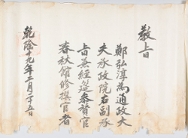 敎旨
鄭弘淳爲通政大
夫承政院右副承
旨兼經筵參贊官
春秋館修撰官者
乾隆十九年二月二十五日